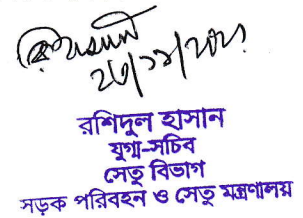 ২৩/১১/২০২১
রশিদুল হাসান
যুগ্ম-সচিব
সেতু বিভাগ
সড়ক পরিবহন ও সেতু মন্ত্রণালয়